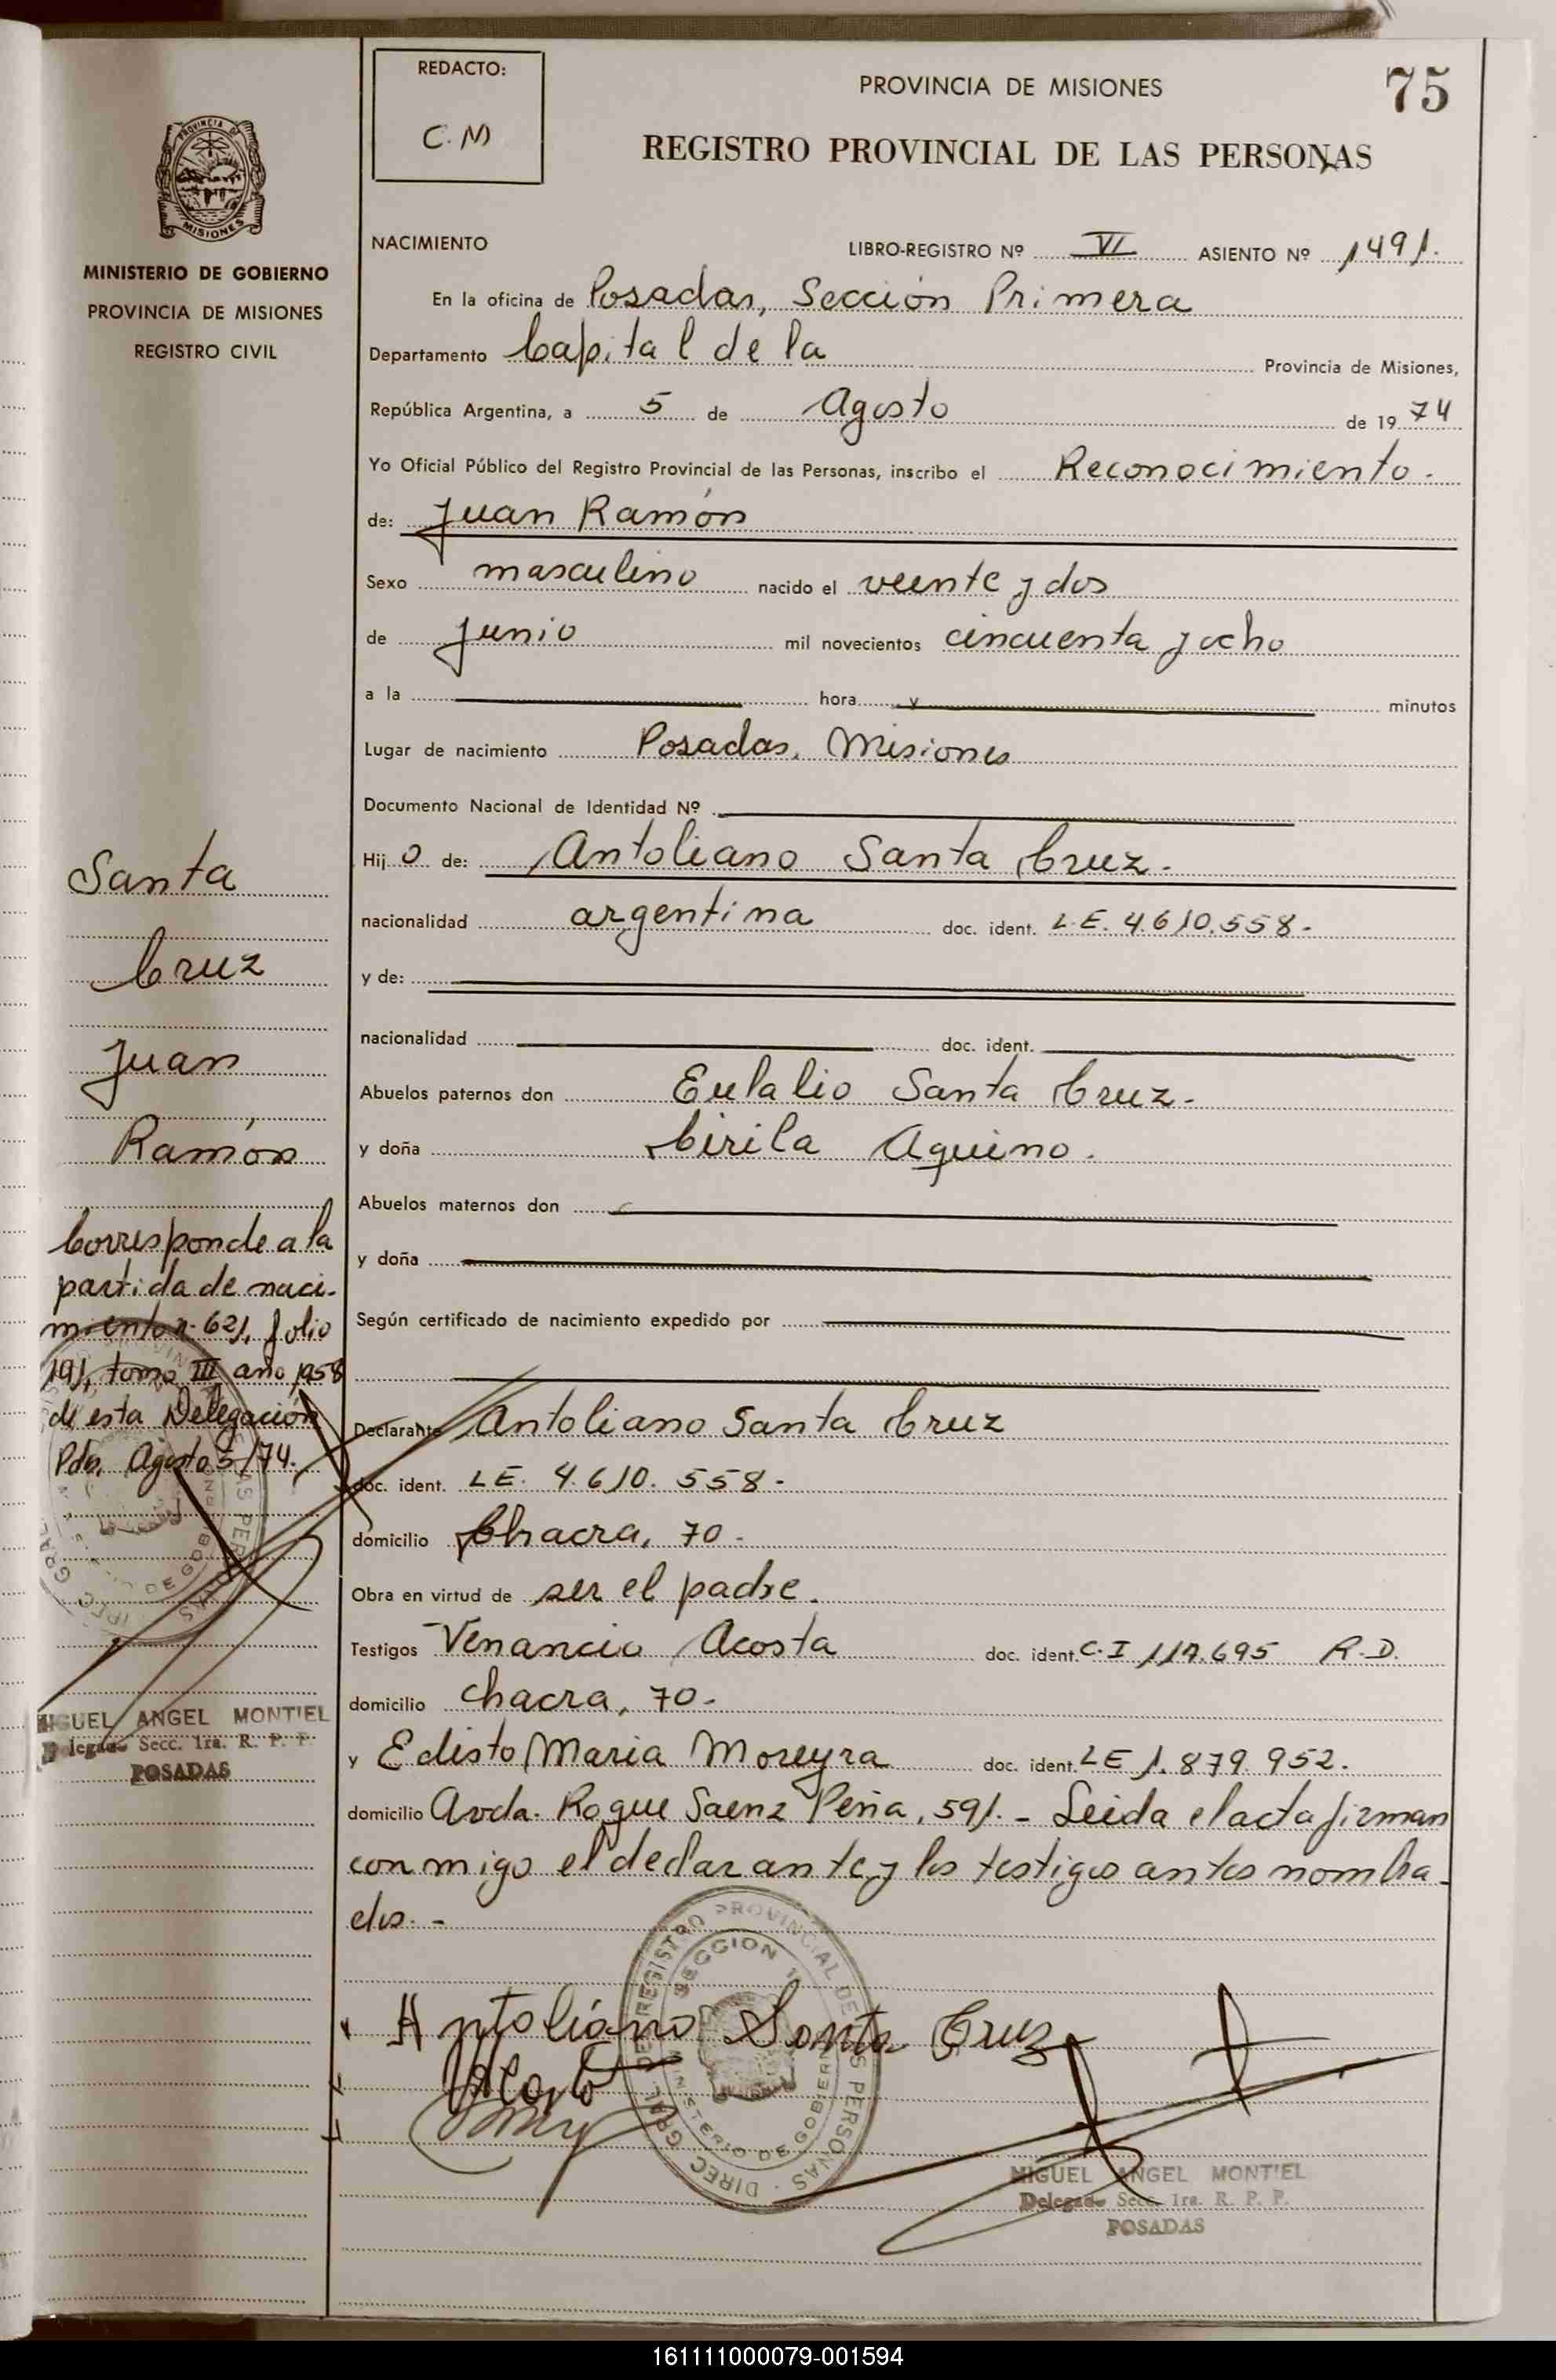 REDACTO:
C. M
PROVINCIA DE MISIONES
75
REGISTRO PROVINCIAL DE LAS PERSONAS
PROVINCIA DE
MISIONES
MINISTERIO DE GOBIERNO
PROVINCIA DE MISIONES
REGISTRO CIVIL
NACIMIENTO LIBRO-REGISTRO Nº VI ASIENTO Nº 1491.
En la oficina de Posadas, Sección Primera
Departamento Capital de la Provincia de Misiones,
República Argentina, a 5 de Agosto de 1974
Yo Oficial Público del Registro Provincial de las Personas, inscribo el Reconocimiento.
de: Juan Ramón
Sexo masculino nacido el veinte y dos
de junio mil novecientos cincuenta y ocho
a la hora y minutos
Lugar de nacimiento Posadas, Misiones
Documento Nacional de Identidad Nº
Hijo de: Antoliano Santa Cruz.
nacionalidad argentina doc. ident. L.E. 4.610.558.
y de:
nacionalidad doc. ident.
Abuelos paternos don Eulalio Santa Cruz.
y doña Cirila Aquino.
Abuelos maternos don
y doña
Según certificado de nacimiento expedido por
Declarante Antoliano Santa Cruz
doc. ident. LE. 4.610.558.
domicilio Chacra, 70.
Obra en virtud de ser el padre.
Testigos Venancio Acosta doc. ident. C.I 117.695 R.D.
domicilio chacra, 70.
y Edisto Maria Moreyra doc. ident. LE 1.879.952.
domicilio Avda. Roque Saenz Peña, 591. - Leida el acta firman
conmigo el declarante y los testigos antes nombra-
dos. -
Santa
Cruz
Juan
Ramón
Corresponde a la
partida de naci-
miento n. 621, folio
191, tomo III año 1958
de esta Delegación
Pdas, Agosto 5/74.
MIGUEL ANGEL MONTIEL
Delegado Secc. 1ra. R. P. P.
POSADAS
Antoliano Santa Cruz
Acosta
DIREC. GRAL. DE REGISTRO PROVINCIAL DE LAS PERSONAS
SECCION 1
MINISTERIO DE GOBIERNO
MIGUEL ANGEL MONTIEL
Delegado Secc. 1ra. R. P. P.
POSADAS
161111000079-001594